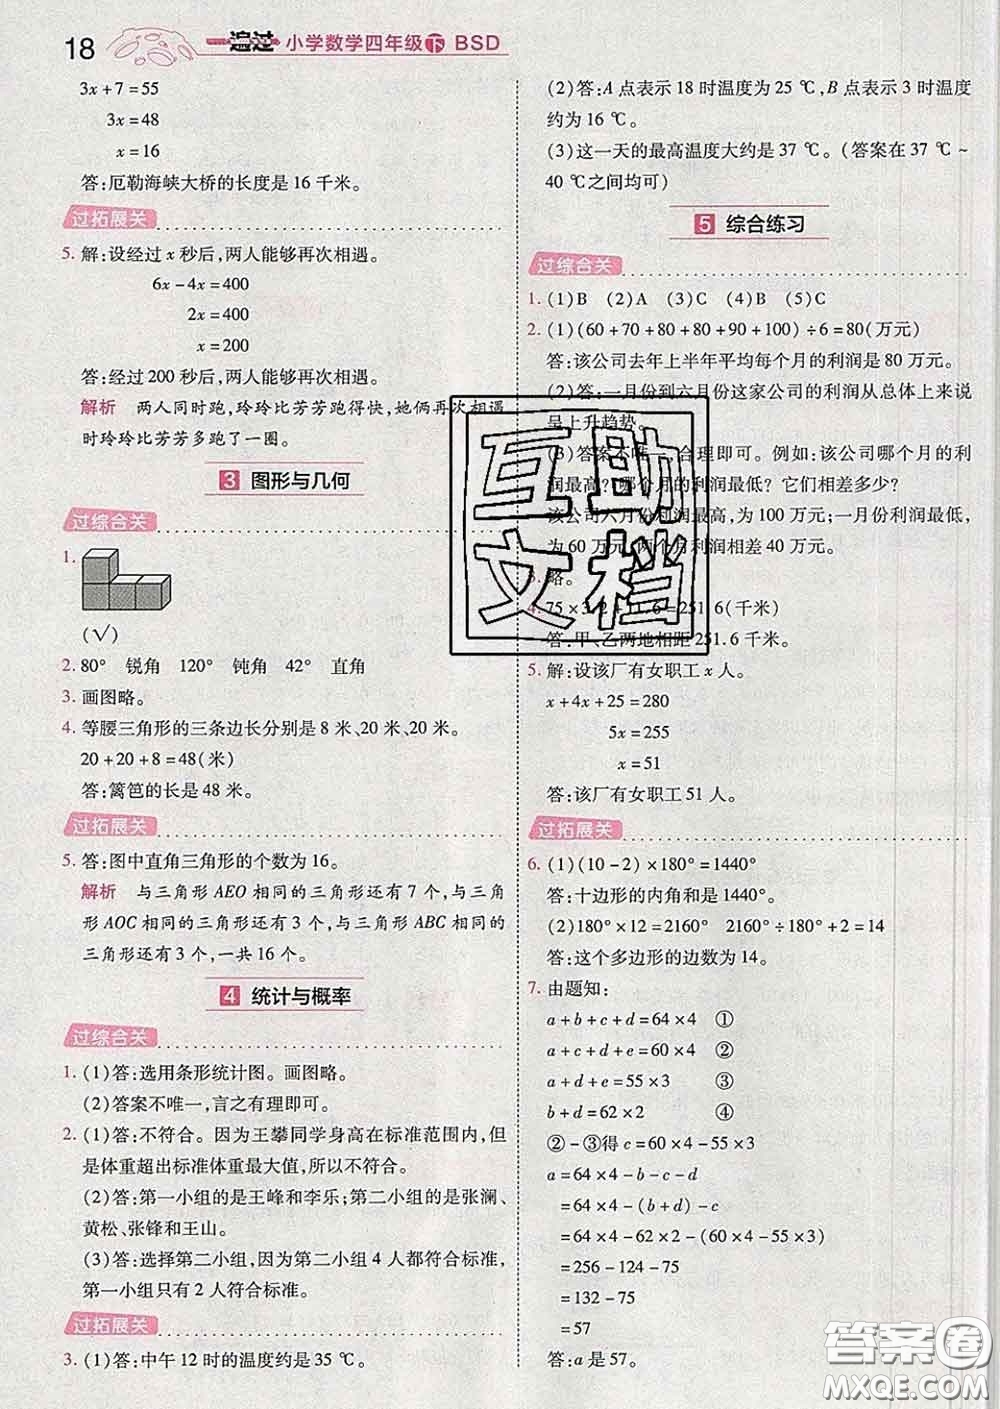 18 一遍过 小学数学四年级 下 BSD
3x+7=55
3x=48
x=16
答:厄勒海峡大桥的长度是16千米。
过拓展关
5. 解:设经过x秒后,两人能够再次相遇。
6x-4x=400
2x=400
x=200
答:经过200秒后,两人能够再次相遇。
解析 两人同时跑,玲玲比芳芳跑得快,她俩再次相遇
时玲玲比芳芳多跑了一圈。
3 图形与几何
过综合关
1.
(√)
2. 80° 锐角 120° 钝角 42° 直角
3. 画图略。
4. 等腰三角形的三条边长分别是8米、20米、20米。
20+20+8=48(米)
答:篱笆的长是48米。
过拓展关
5. 答:图中直角三角形的个数为16。
解析 与三角形AEO相同的三角形还有7个,与三角
形AOC相同的三角形还有3个,与三角形ABC相同的
三角形还有3个,一共16个。
4 统计与概率
过综合关
1. (1)答:选用条形统计图。画图略。
(2)答案不唯一,言之有理即可。
2. (1)答:不符合。因为王攀同学身高在标准范围内,但
是体重超出标准体重最大值,所以不符合。
(2)答:第一小组的是王峰和李乐;第二小组的是张澜、
黄松、张锋和王山。
(3)答:选择第二小组,因为第二小组4人都符合标准,
第一小组只有2人符合标准。
过拓展关
3. (1)答:中午12时的温度约是35 ℃。
(2)答:A点表示18时温度为25 ℃,B点表示3时温度
约为16 ℃。
(3)这一天的最高温度大约是37 ℃。(答案在37 ℃~
40 ℃之间均可)
5 综合练习
过综合关
1. (1)B (2)A (3)C (4)B (5)C
2. (1)(60+70+80+80+90+100)÷6=80(万元)
答:该公司去年上半年平均每个月的利润是80万元。
(2)答:一月份到六月份这家公司的利润从总体上来说
呈上升趋势。
(3)答案不唯一,合理即可。例如:该公司哪个月的利
润最高?哪个月的利润最低?它们相差多少?
该公司六月份利润最高,为100万元;一月份利润最低,
为60万元,两个月利润相差40万元。
3. 略。
4. 75×3.2+11.6=251.6(千米)
答:甲、乙两地相距251.6千米。
5. 解:设该厂有女职工x人。
x+4x+25=280
5x=255
x=51
答:该厂有女职工51人。
过拓展关
6. (1)(10-2)×180°=1440°
答:十边形的内角和是1440°。
(2)180°×12=2160° 2160°÷180°+2=14
答:这个多边形的边数为14。
7. 由题知:
a+b+c+d=64×4 ①
a+c+d+e=60×4 ②
a+d+e=55×3 ③
b+d=62×2 ④
②-③得c=60×4-55×3
a=64×4-b-c-d
=64×4-(b+d)-c
=64×4-62×2-(60×4-55×3)
=256-124-75
=132-75
=57
答:a是57。
互助
文档
答案圈
MXQE.COM